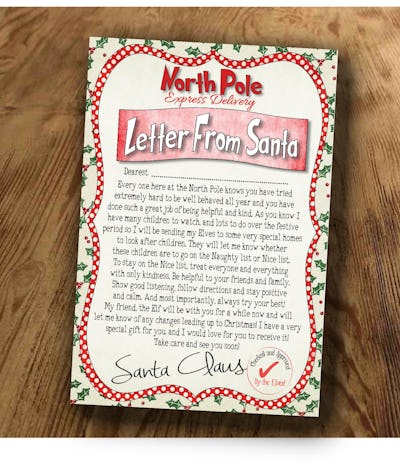 North Pole
Express Delivery
Letter From Santa
Dearest ................................................
Every one here at the North Pole knows you have tried
extremely hard to be well behaved all year and you have
done such a great job of being helpful and kind. As you know I
have many children to watch, and lots to do over the festive
period so I will be sending my Elves to some very special homes
to look after children. They will let me know whether
these children are to go on the Naughty list or Nice list.
To stay on the Nice list, treat everyone and everything
with only kindness. Be helpful to your friends and family.
Show good listening, follow directions and stay positive
and calm. And most importantly, always try your best!
My friend, the Elf will be with you for a while now and will
let me know of any changes leading up to Christmas! I have a very
special gift for you, and I would love for you to receive it!
Take care and see you soon!
Santa Claus
Checked and Approved
By the Elves!